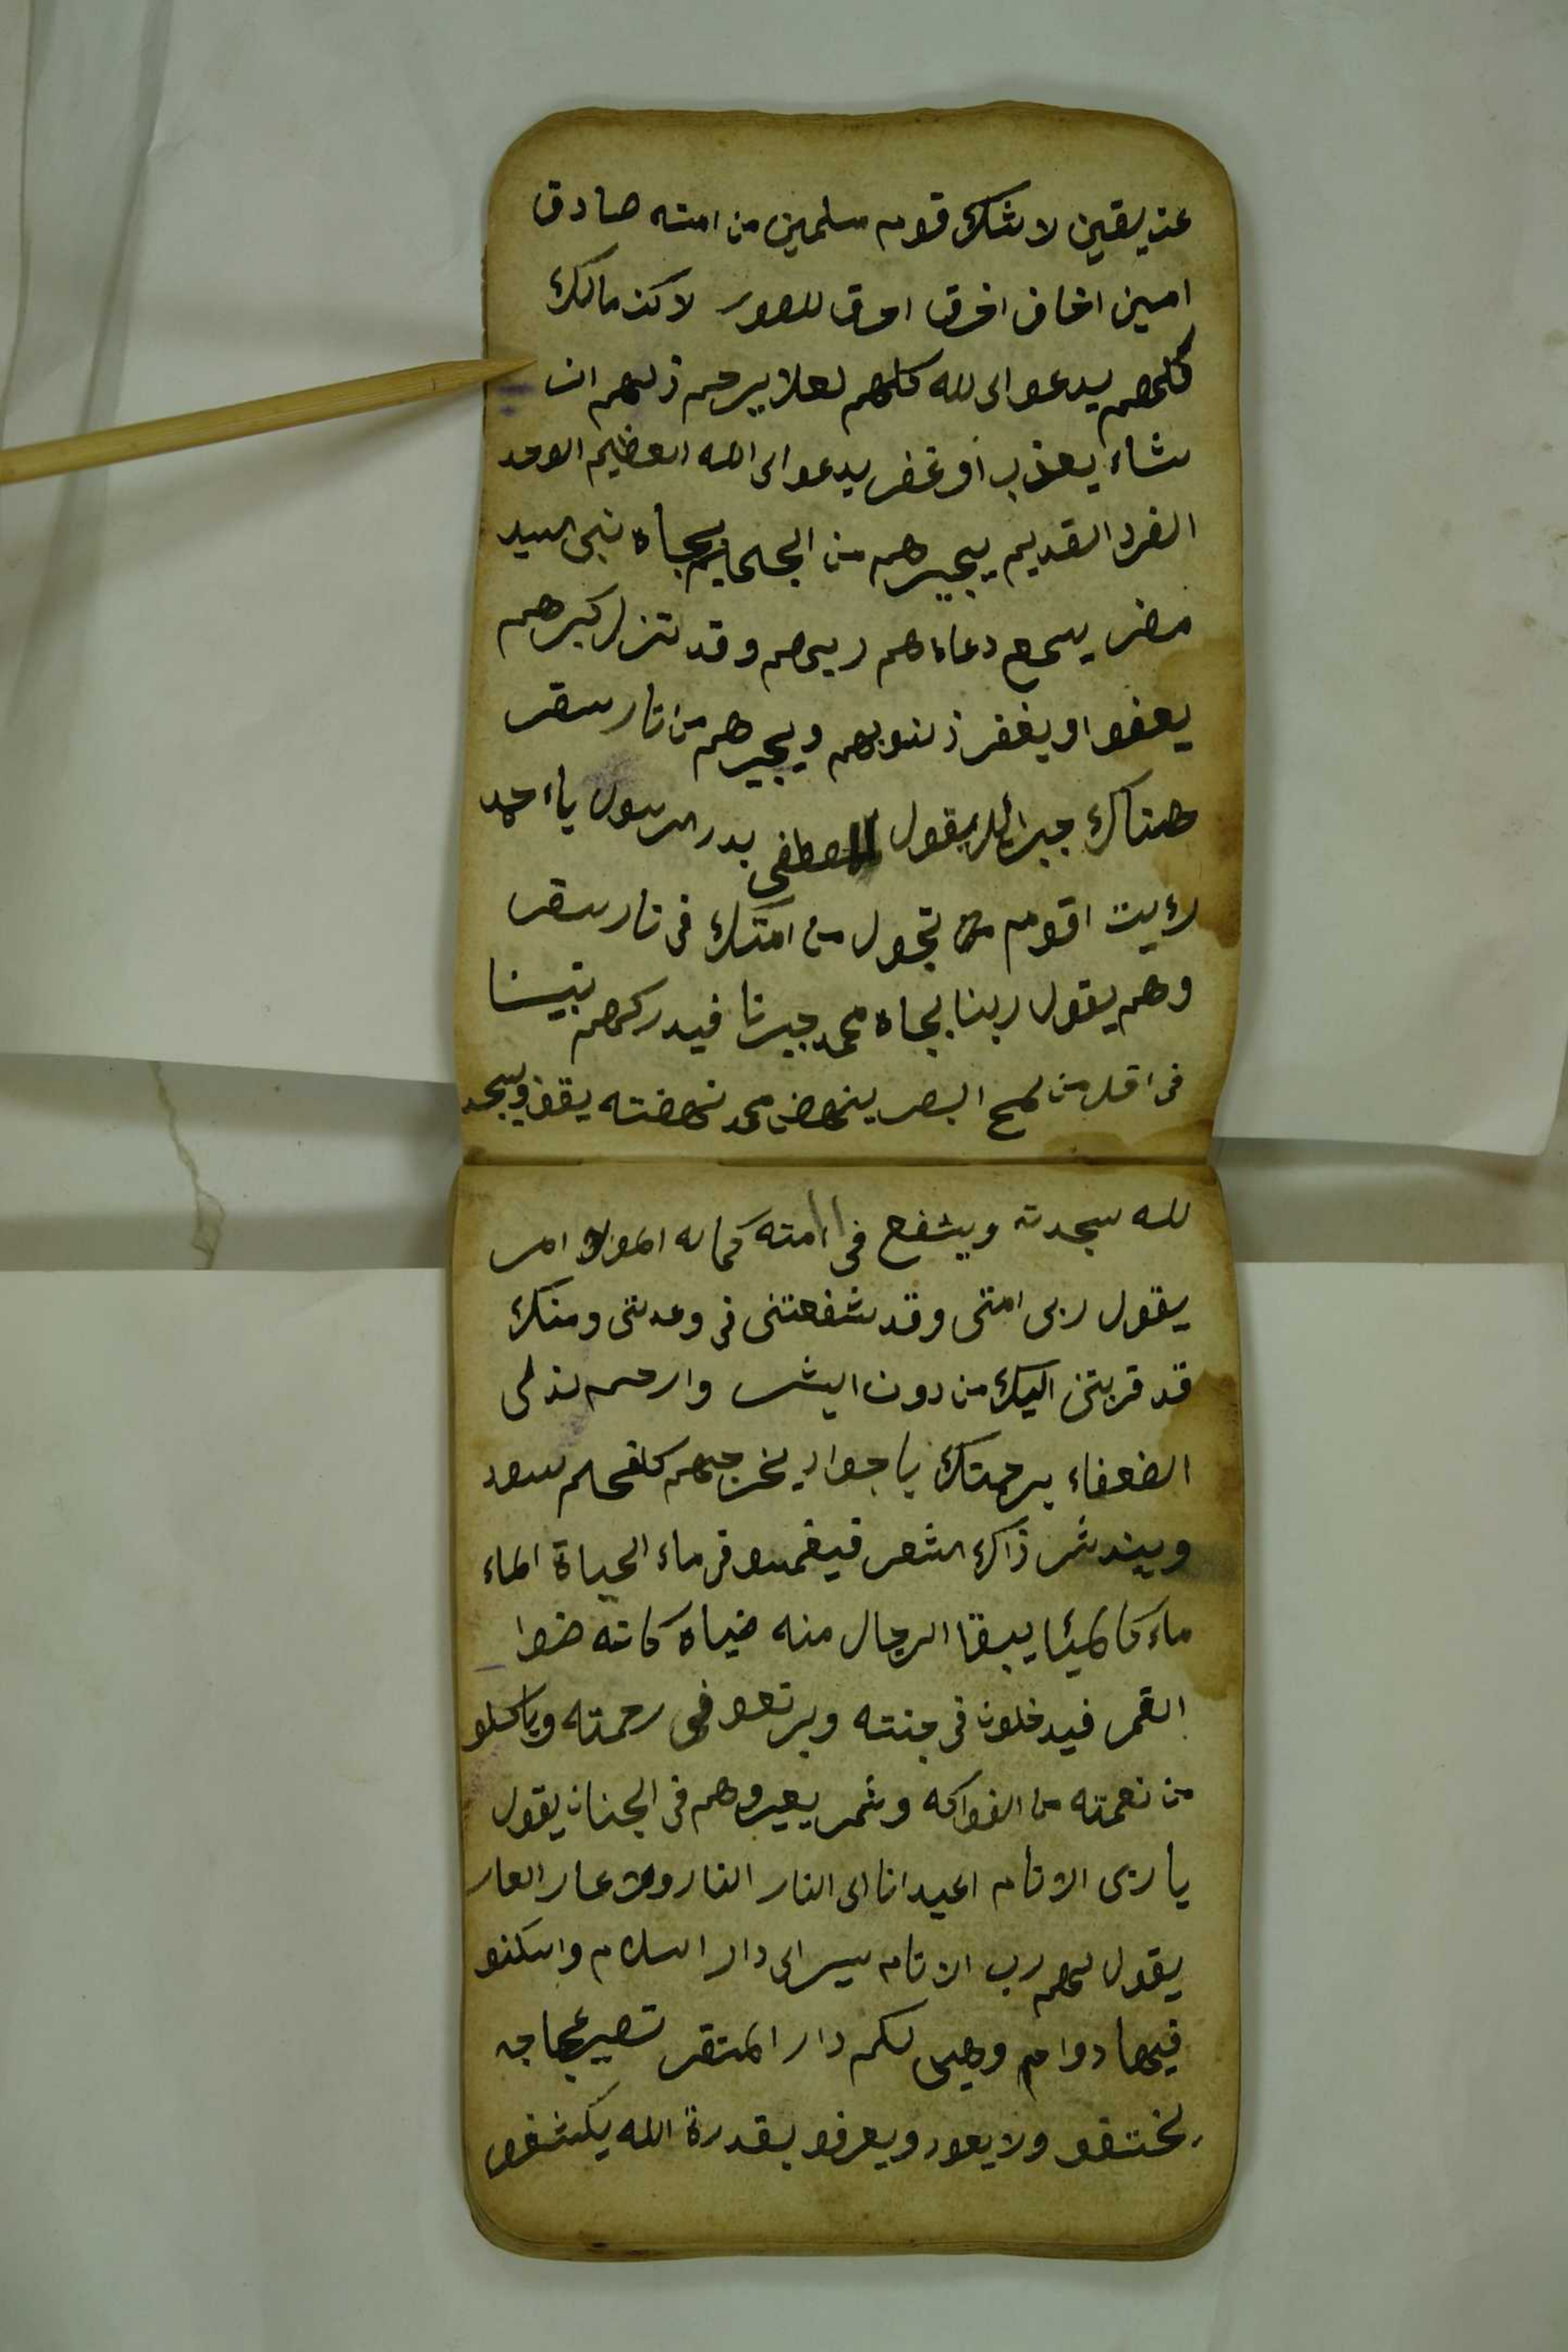 عن يقين لا شك قوم مسلمين من امته صادق
امين اخاف احرق للصور لاكن مالك
كلهم يدعو الى لله كلهم لعلا يرحم ذلهم ان
شاء يعذب أو غفر يدعو الى الله العظيم الاوحد
الفرد القديم يجيرهم من الجحيم بجاه نبى السيد
مضر يسمع دعاءهم ربهم وقد تنزل كبرهم
يعفو او يغفر ذنوبهم ويجيرهم من نار سقر
هناك جبرائيل يقول المصطفى بدر الرسول يا احمد
رءيت اقوم تجول من امتك فى نار سقر
وهم يقول ربنا بجاه محمد جيرنا فيدركهم نبينا
فى اقل من لمح البصر ينهض محمد نهضته يقف ويسجد
لله سجدته ويشفع فى امته كما له المولا امر
يقول ربى امتى وقد شفعتنى فى وعدتنى ومنك
قد قربتنى اليك من دون البشر وارحم لذلى
الضعفاء برحمتك يا جواد يخرجهم كلفحلم سود
ويندثر ذاك الشعر فيغمسو فى ماء الحياة الماء
ماء يبقا الرجال منه ضياه كانه ضوا
القمر فيدخلون فى جنته ويرتعو فى رحمته وياكلو
من نعمته من الفواكه وثمر يعيروهم فى الجنان يقول
يا ربى الانام اعيدانا الى النار النار ولا عار العار
يقول لهم رب الانام سير الى دار السلام واسكنو
فيها دوام وهى لكم دار المتقر تصير عجاجه
يختفو ولا يعود ويعرفو بقدرة الله يكشفو